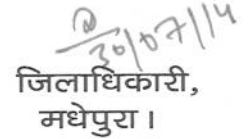 30/07/14
जिलाधिकारी,
मधेपुरा ।